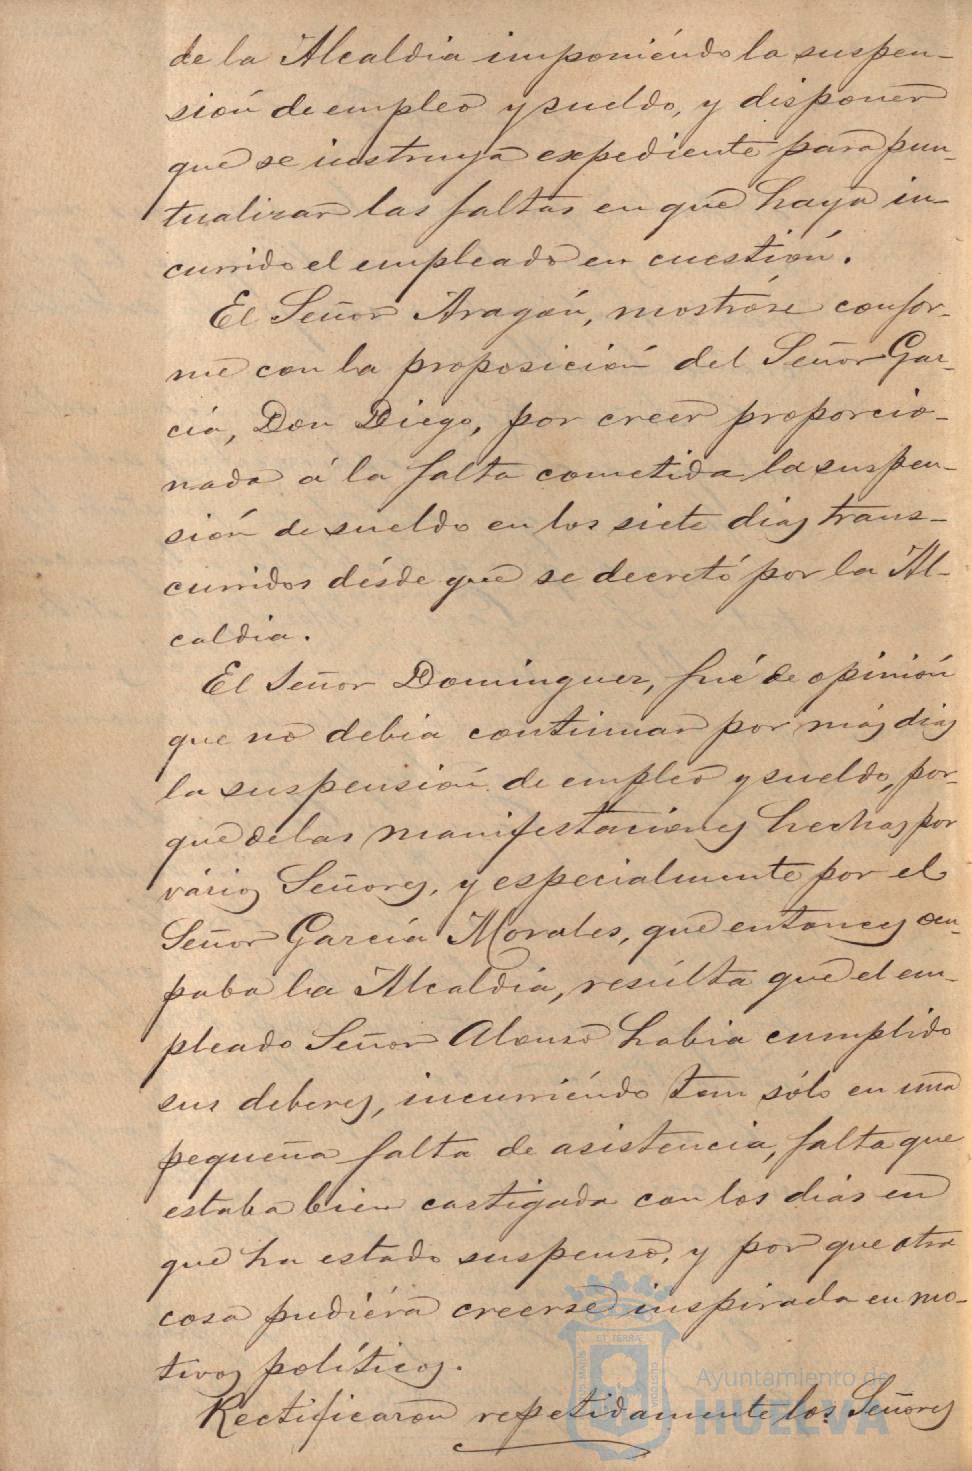 de la Alcaldia imponiéndo la suspen-
sión de empleo y sueldo, y disponer
que se instruya expediente para pun-
tualizar las faltas en que haya in-
currido el empleado en cuestión.
El Señor Aragón, mostróse confor-
me con la proposición del Señor Gar-
cía, Don Diego, por creer proporcio-
nada á la falta cometida la suspen-
sión de sueldo en los siete dias trans-
curridos désde que se decretó por la Al-
caldia.
El Señor Dominguez, fué de opinión
que no debia continuar por más dias
la suspensión de empleo y sueldo, por-
que de las manifestaciones hechas por
vários Señores, y especialmente por el
Señor García Morales, que entonces ocu-
paba la Alcaldia, resúlta que el em-
pleado Señor Alonso habia cumplido
sus deberes, incurriéndo tan sólo en una
pequeña falta de asistencia, falta que
estaba bien castigada con los dias en
que ha estado suspenso, y por que otra
cosa pudiéra creerse inspirada en mo-
tivos políticos.
Rectificaron repetidamente los Señores
ET TERRA
Ayuntamiento de
HUELVA